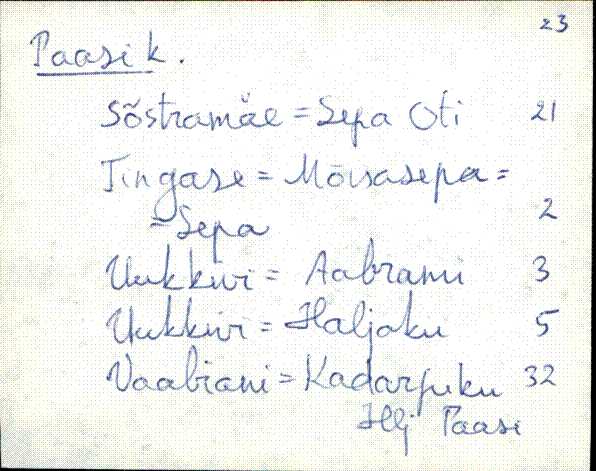 23
Paasi k.
Sõstramäe = Sepa Oti 21
Tingase = Mõisasepa =
= Sepa 2
Uukkivi = Aabrami 3
Uukkivi = Haljaku 5
Vaabiani = Kadarpuku 32
Hlj Paasi